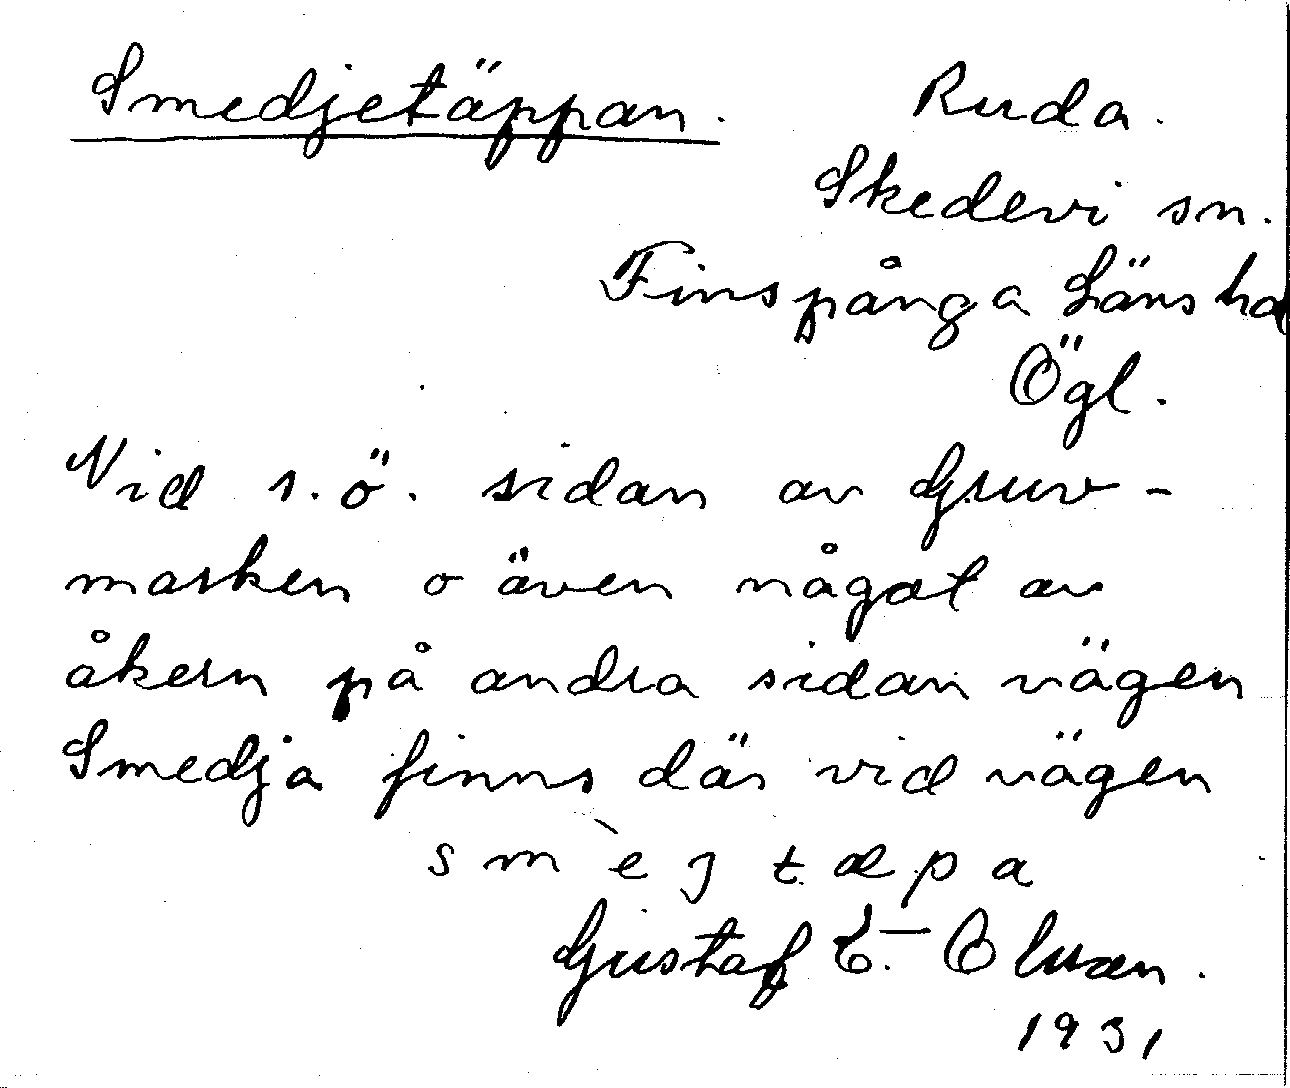 Smedjetäppan. Ruda.
Skedevi sn.
Finspånga Läns hd
Ögl.
Vid s.ö. sidan av Gruv-
marken o även något av
åkern på andra sidan vägen
Smedja finns där vid vägen
smèjtæpa
Gustaf E. Olsson.
1931